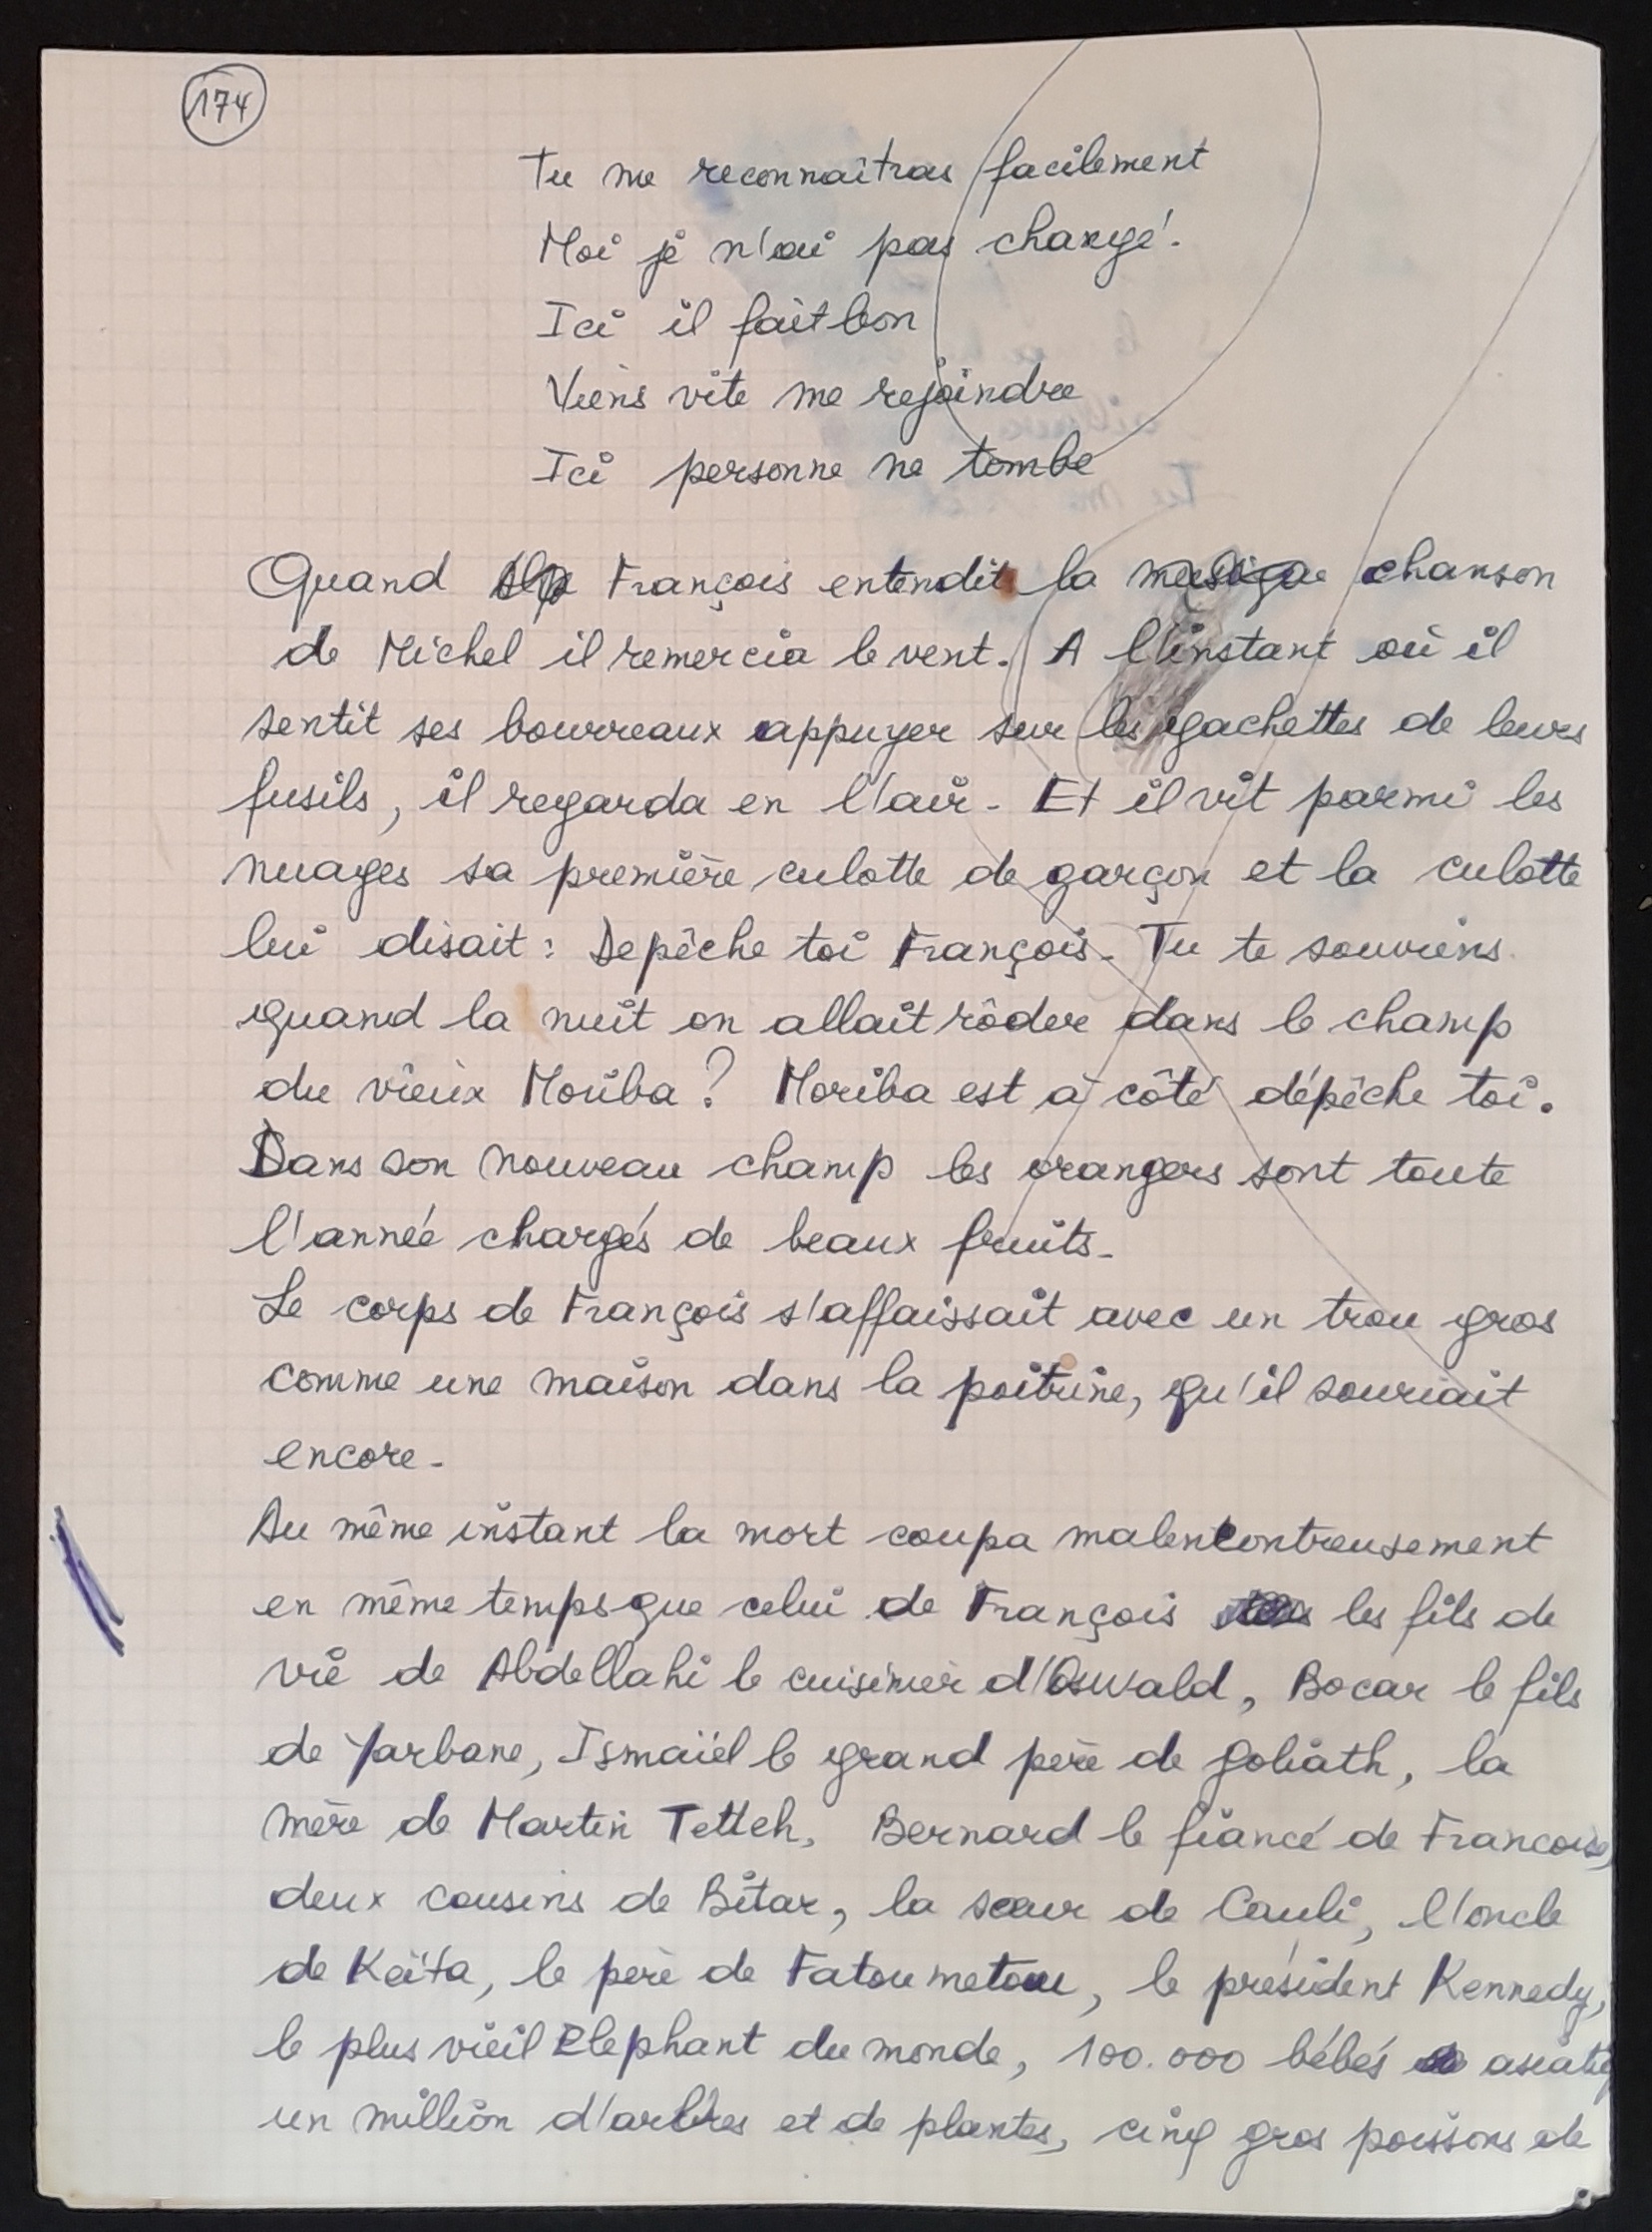 174
Tu me reconnaîtras facilement
Moi je n'ai pas changé.
Ici il fait bon
Viens vite me rejoindre
Ici personne ne tombe
Quand François entendit la musique chanson
de Michel il remercia le vent. A l'instant où il
sentit ses bourreaux appuyer sur les gachettes de leurs
fusils, il regarda en l'air. Et il vit parmi les
nuages sa première culotte de garçon et la culotte
lui disait : Depêche toi François. Tu te souviens
quand la nuit on allait rôder dans le champ
du vieux Moriba ? Moriba est à côté dépêche toi.
Dans son nouveau champ les orangers sont toute
l'année chargés de beaux fruits.
Le corps de François s'affaissait avec un trou gros
comme une maison dans la poitrine, qu'il souriait
encore.
Au même instant la mort coupa malencontreusement
en même temps que celui de François les fils de
vie de Abdellahi le cuisinier d'Oswald, Bocar le fils
de Yarbane, Ismaïel le grand père de Goliath, la
mère de Martin Tetteh, Bernard le fiancé de Francoise,
deux cousins de Bitar, la sœur de Cauli, l'oncle
de Keïta, le père de Fatoumetou, le président Kennedy,
le plus vieil Elephant du monde, 100.000 bébés asiatiq
un million d'arbres et de plantes, cinq gros poissons de